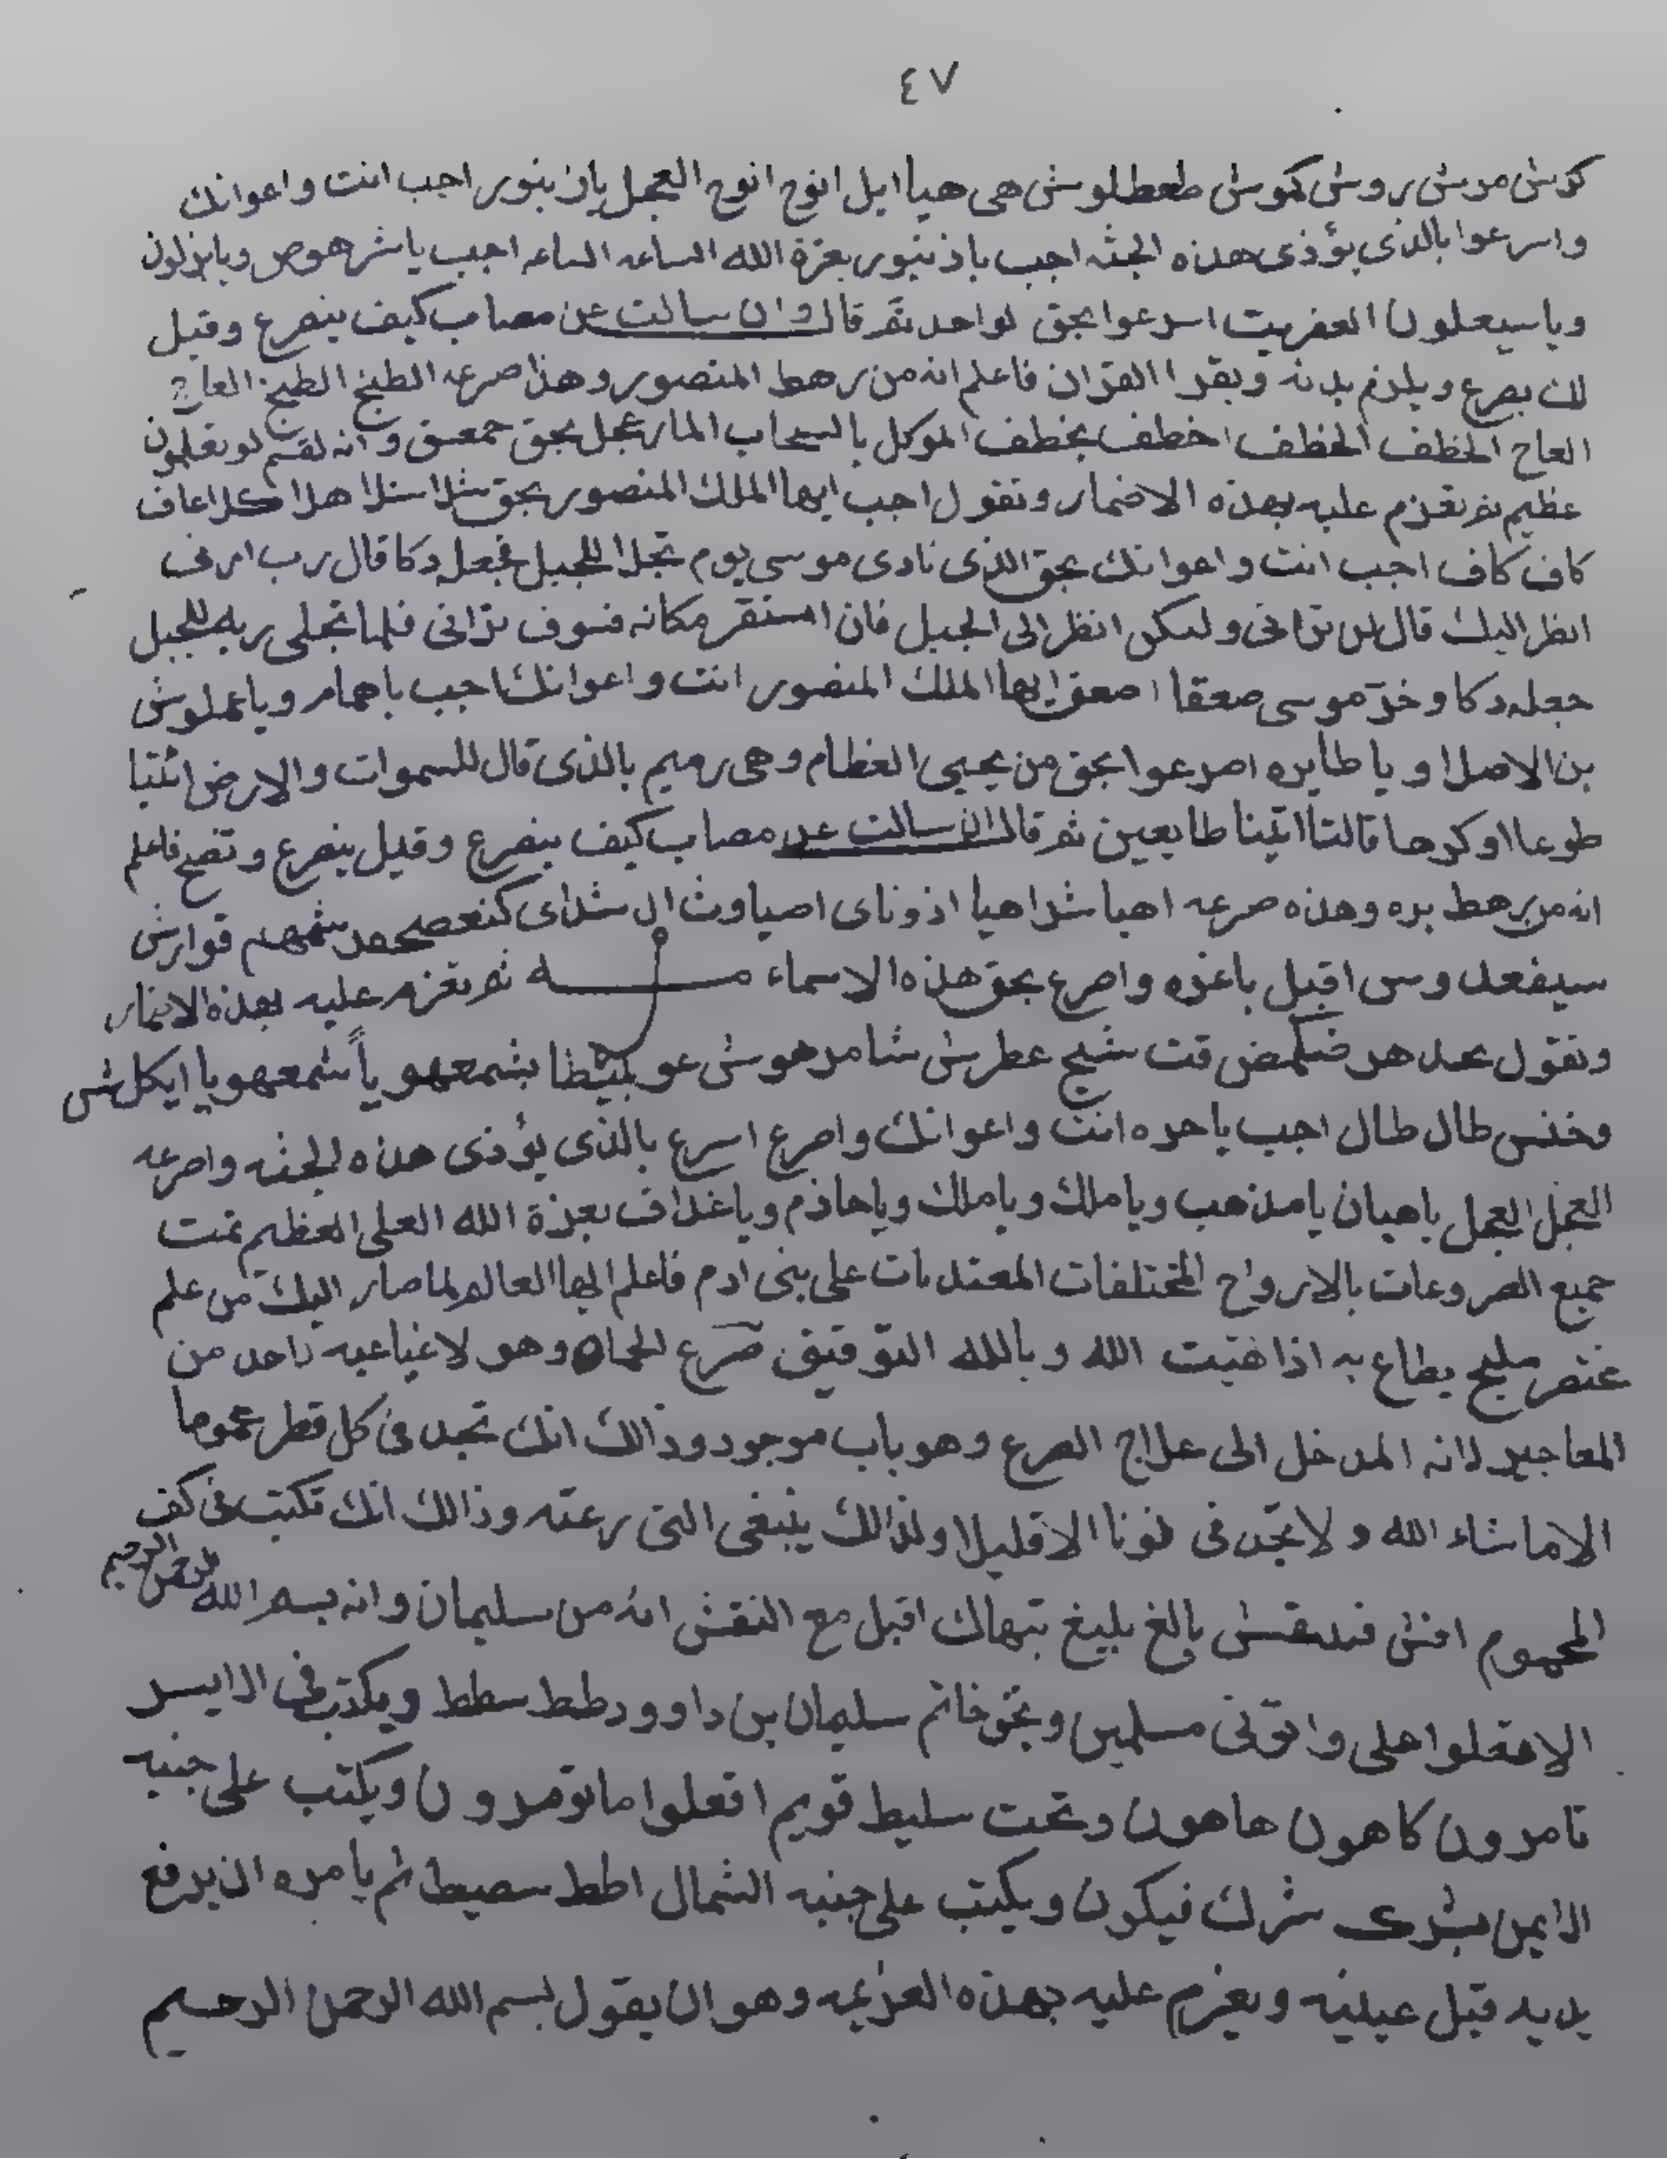 ٤٧
كوش موش بروش كموش طعطلوش هى هيا ايل انوخ انوخ العجل باذ بنور اجب انت واعوانك
واسرعوا بالذى يؤذى هذه الجثه اجب باذ بنور بعزة الله الساعه الساعه اجب ياشرهوص ويا
ويا سيعلون العفريت اسرعوا بحق لواحد ثم قال وان سالت عن مصاب كيف ينصرع وقيل
لك يصرع ويلزم بدنه ويقرا القران فاعلم انه من رهط المنصور وهذا صرعه الطيخ الطيخ العاج
العاج الخطف الخطف اخطف بخطف الموكل بالسحاب المار عجل بحق حمعسق وانه لقسم لو تعلمون
عظيم ثم تعزم عليه بهذه الاضمار وتقول اجب ايها الملك المنصور بحق شلا شلا هلا كلا عاف
كاف كاف اجب انت واعوانك بحق الذى نادى موسى يوم تجلا للجبل فجعله دكا قال رب ارنى
انظر اليك قال لن ترانى ولكن انظر الى الجبل فان استقر مكانه فسوف ترانى فلما تجلى ربه للجبل
جعله دكا وخر موسى صعقا اصعق ايها الملك المنصور انت واعوانك اجب ياهمام وياعملوش
بن الاصلا ويا طايره اصرعوا بحق من يحيى العظام وهى رميم بالذى قال للسموات والارض ائتيا
طوعا او كرها قالتا اتينا طايعين ثم قال ان سالت عن مصاب كيف ينصرع وقيل ينصرع وتصيح فاعلم
انه من رهط بره وهذه صرعه اهيا شراهيا اذوناى اصباوث ال شداى شمهم قوارش
سيفعد وسى اقبل باعزه واصرع بحق هذه الاسماء مه ثم تعزم عليه بهذه الاضمار
وتقول قت شيخ عطرش شا مرهوش عو بشمعهو يا شمعهو يا ايكل شى
وخنس طال طال اجب ياحره انت واعوانك واصرع اسرع بالذى يؤذى هذه الجثه واصرعه
العجل العجل ياهيان يامذهب وياملك وياملك وياحاذم وياغداف بعزة الله العلى العظيم تمت
جميع الصروعات بالارواح المختلفات المعتديات على بنى ادم فاعلم ايها العالم لما صار اليك من علم
عنصر مليح يطاع به اذا الله وبالله التوفيق صرع الجماه وهو لاغنا عنه واحد من
المعاجين لانه المدخل الى علاج الصرع وهو باب موجود وذالك انك تجد فى كل قطر عموما
الا ماشاء الله ولا تجد فى لونا الا قليلا ولذالك ينبغى التى رعته وذالك انك تكتب فى كف
المحموم افش بالغ بليغ بتهاك اقبل مع النقش انه من سليمان وانه بسم الله الرحمن الرحيم
الا تعلوا على واتونى مسلمين وبحق خاتم سليمان بن داوود طط سطط ويكتب فى الايسر
تامرون كاهون هاهون وتحت سليط قويم افعلوا ما تومرون ويكتب على جنبه
الايمن بشرى شرك فيكون ويكتب على جنبه الشمال اطط سصيط ثم يامره ان يرفع
يديه قبل عينيه ويعزم عليه بهذه العزيمه وهو ان يقول بسم الله الرحمن الرحيم